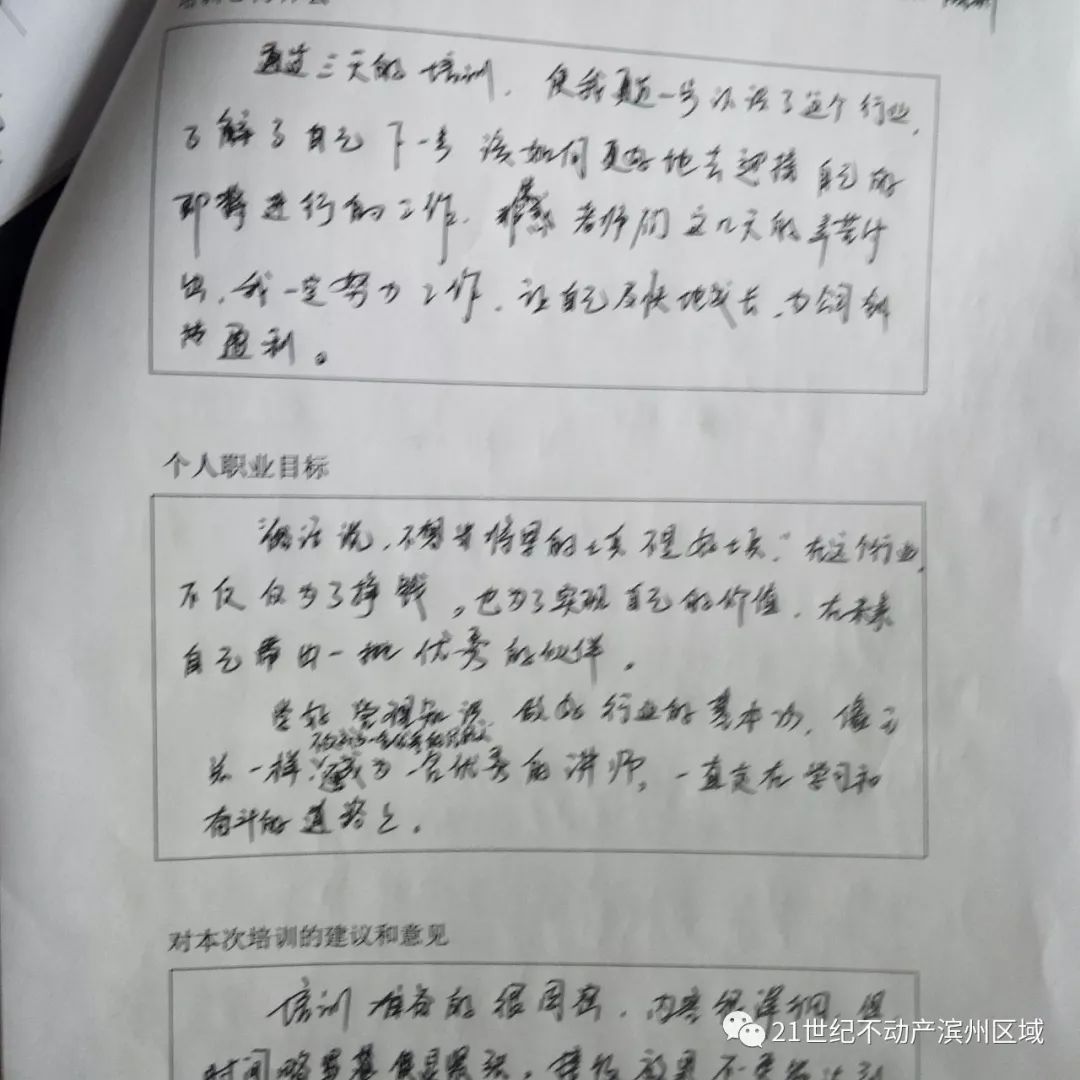 通过三天的培训，使我更近一步认识了这个行业，
了解了自己下一步该如何更好地去迎接自己的
即将进行的工作。感谢老师们这几天的辛苦付
出，我一定努力工作，让自己尽快地成长，为公司创
造盈利。
个人职业目标
俗话说，不想当将军的士兵不是好士兵”在这个行业，
不仅仅为了挣钱，也为了实现自己的价值，在未来
自己带出一批优秀的伙伴。
学好管理知识，做好行业的基本功，像
一样 成为一名优秀的讲师，一直走在学习和
奋斗的道路上。
对本次培训的建议和意见
培训准备的很周密，内容很详细，但
时间略
21世纪不动产滨州区域